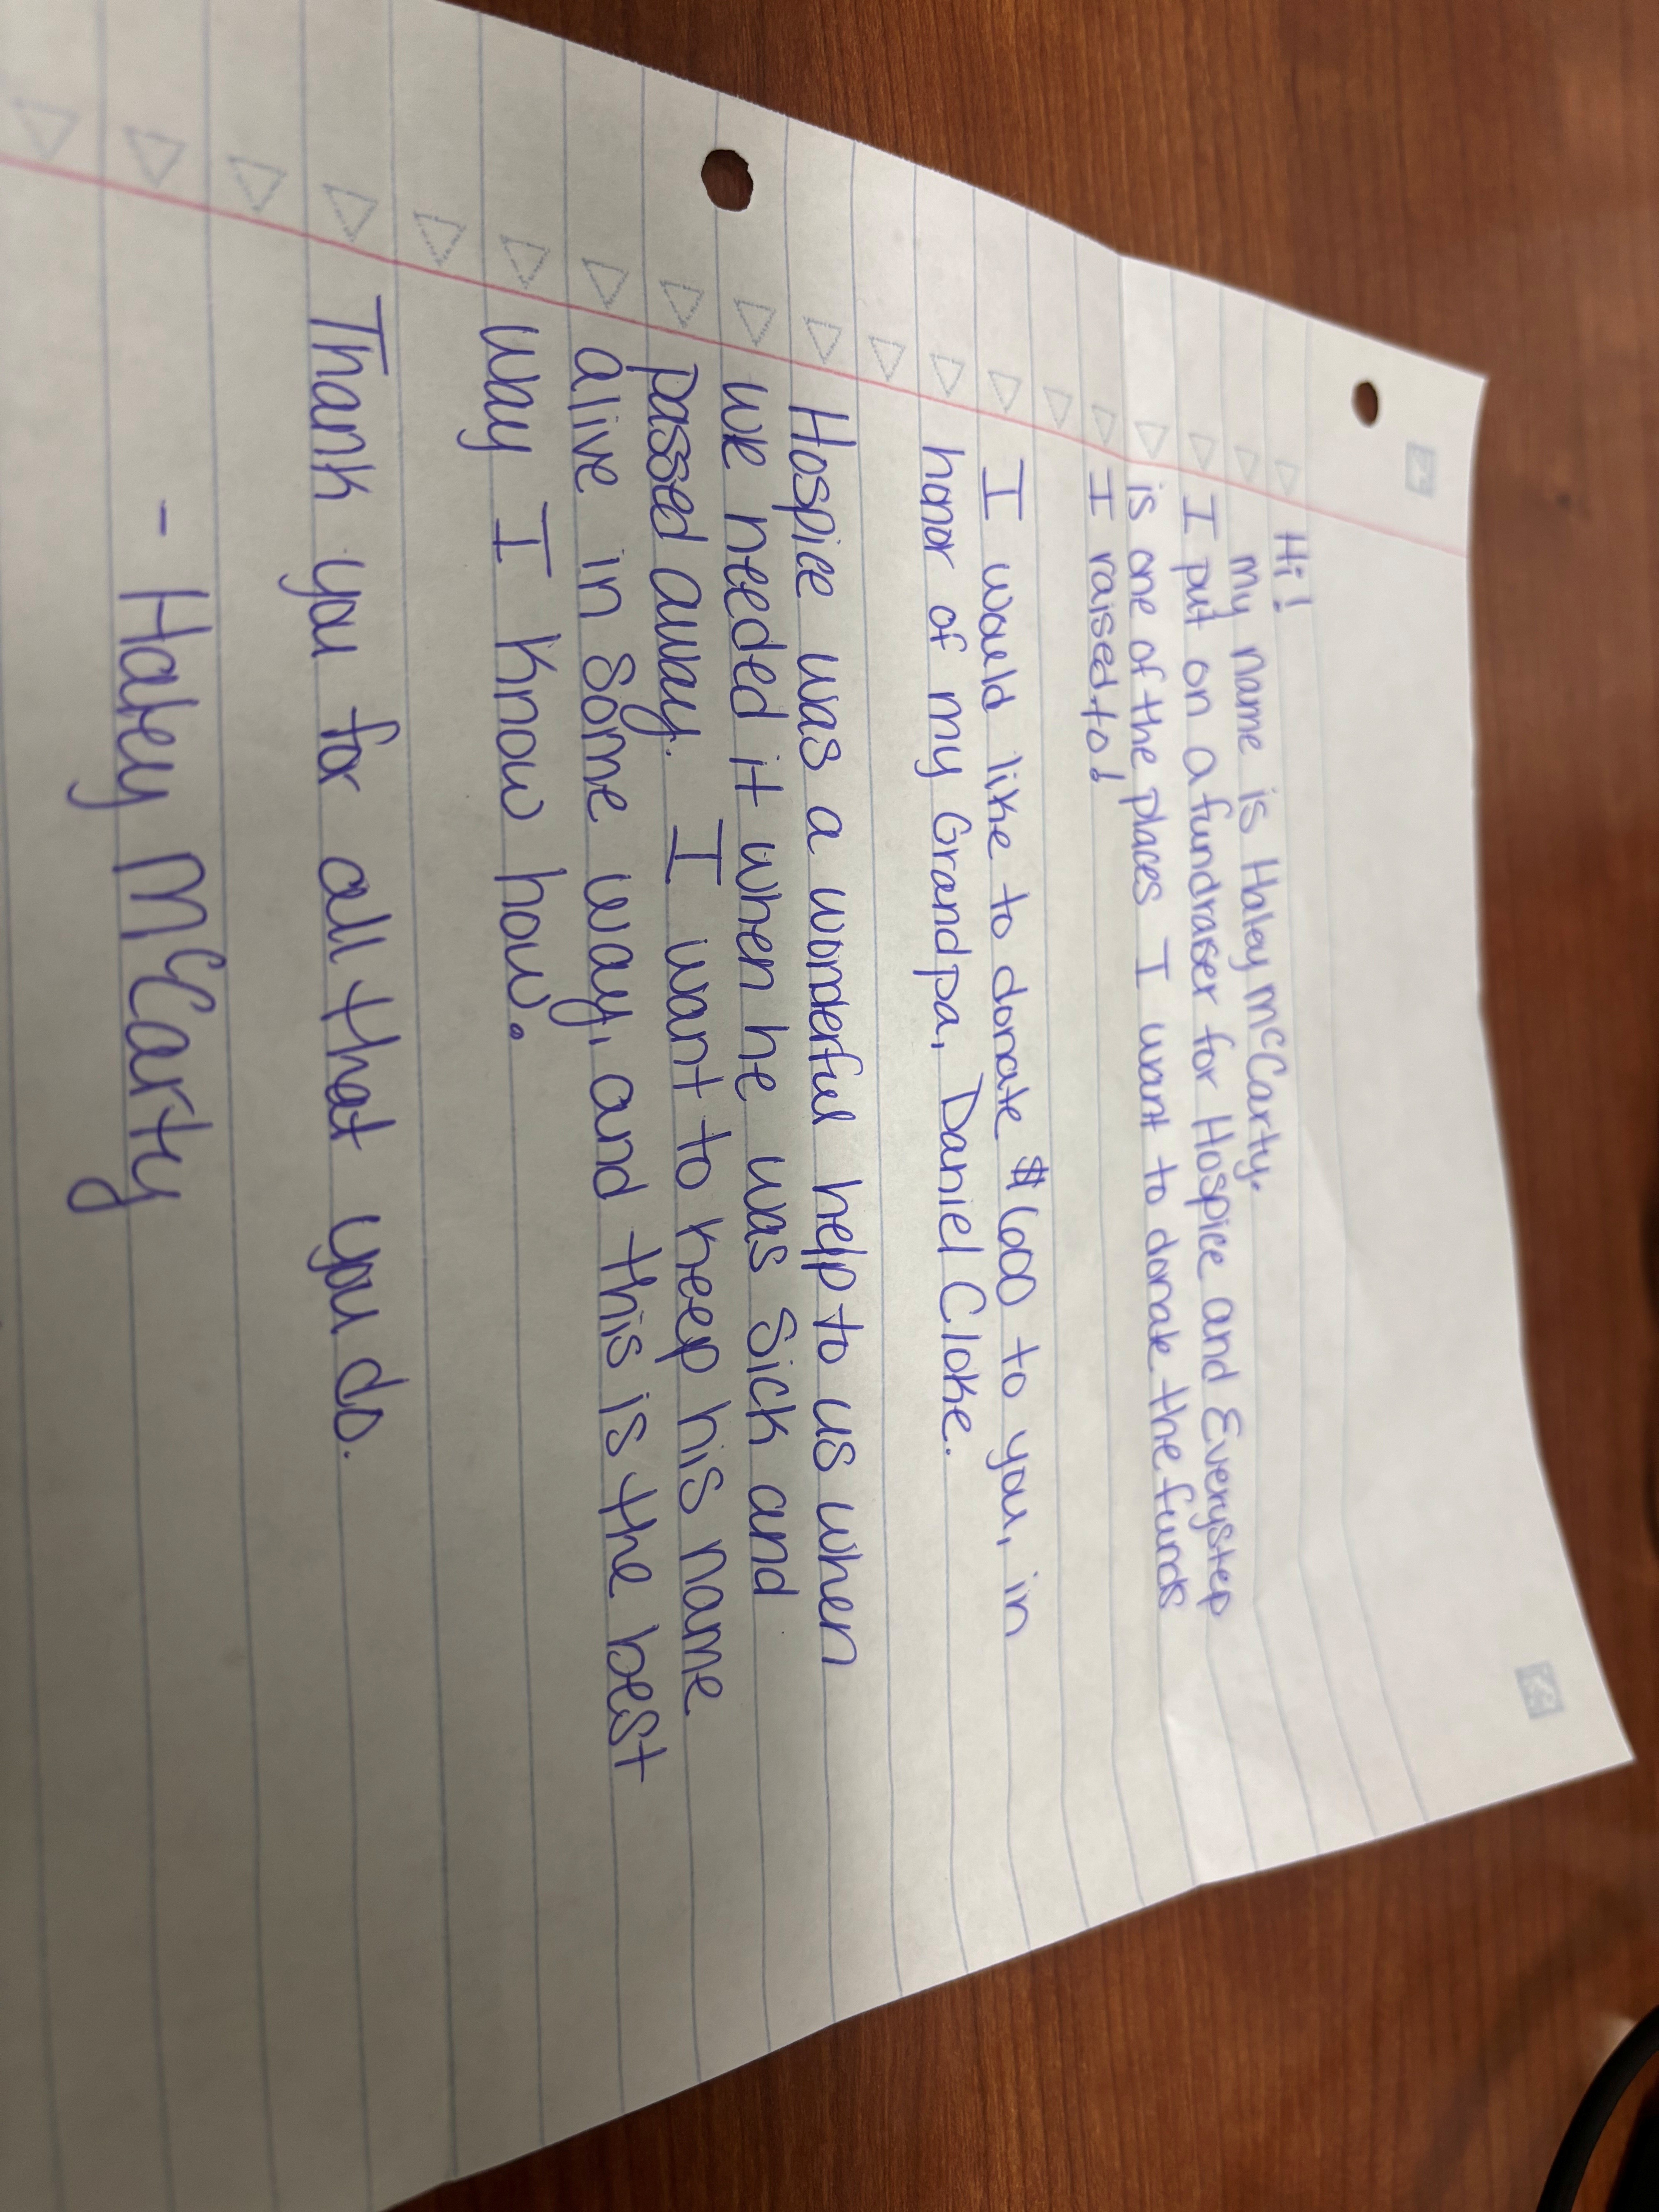 Hi!
My name is Haley McCarty.
I put on a fundraiser for Hospice and Everystep
is one of the places I want to donate the funds
I raised to!
I would like to donate $600 to you, in
honor of my Grandpa, Daniel Cloke.
Hospice was a wonderful help to us when
we needed it when he was sick and
passed away. I want to keep his name
alive in some way, and this is the best
way I know how.
Thank you for all that you do.
- Haley McCarty